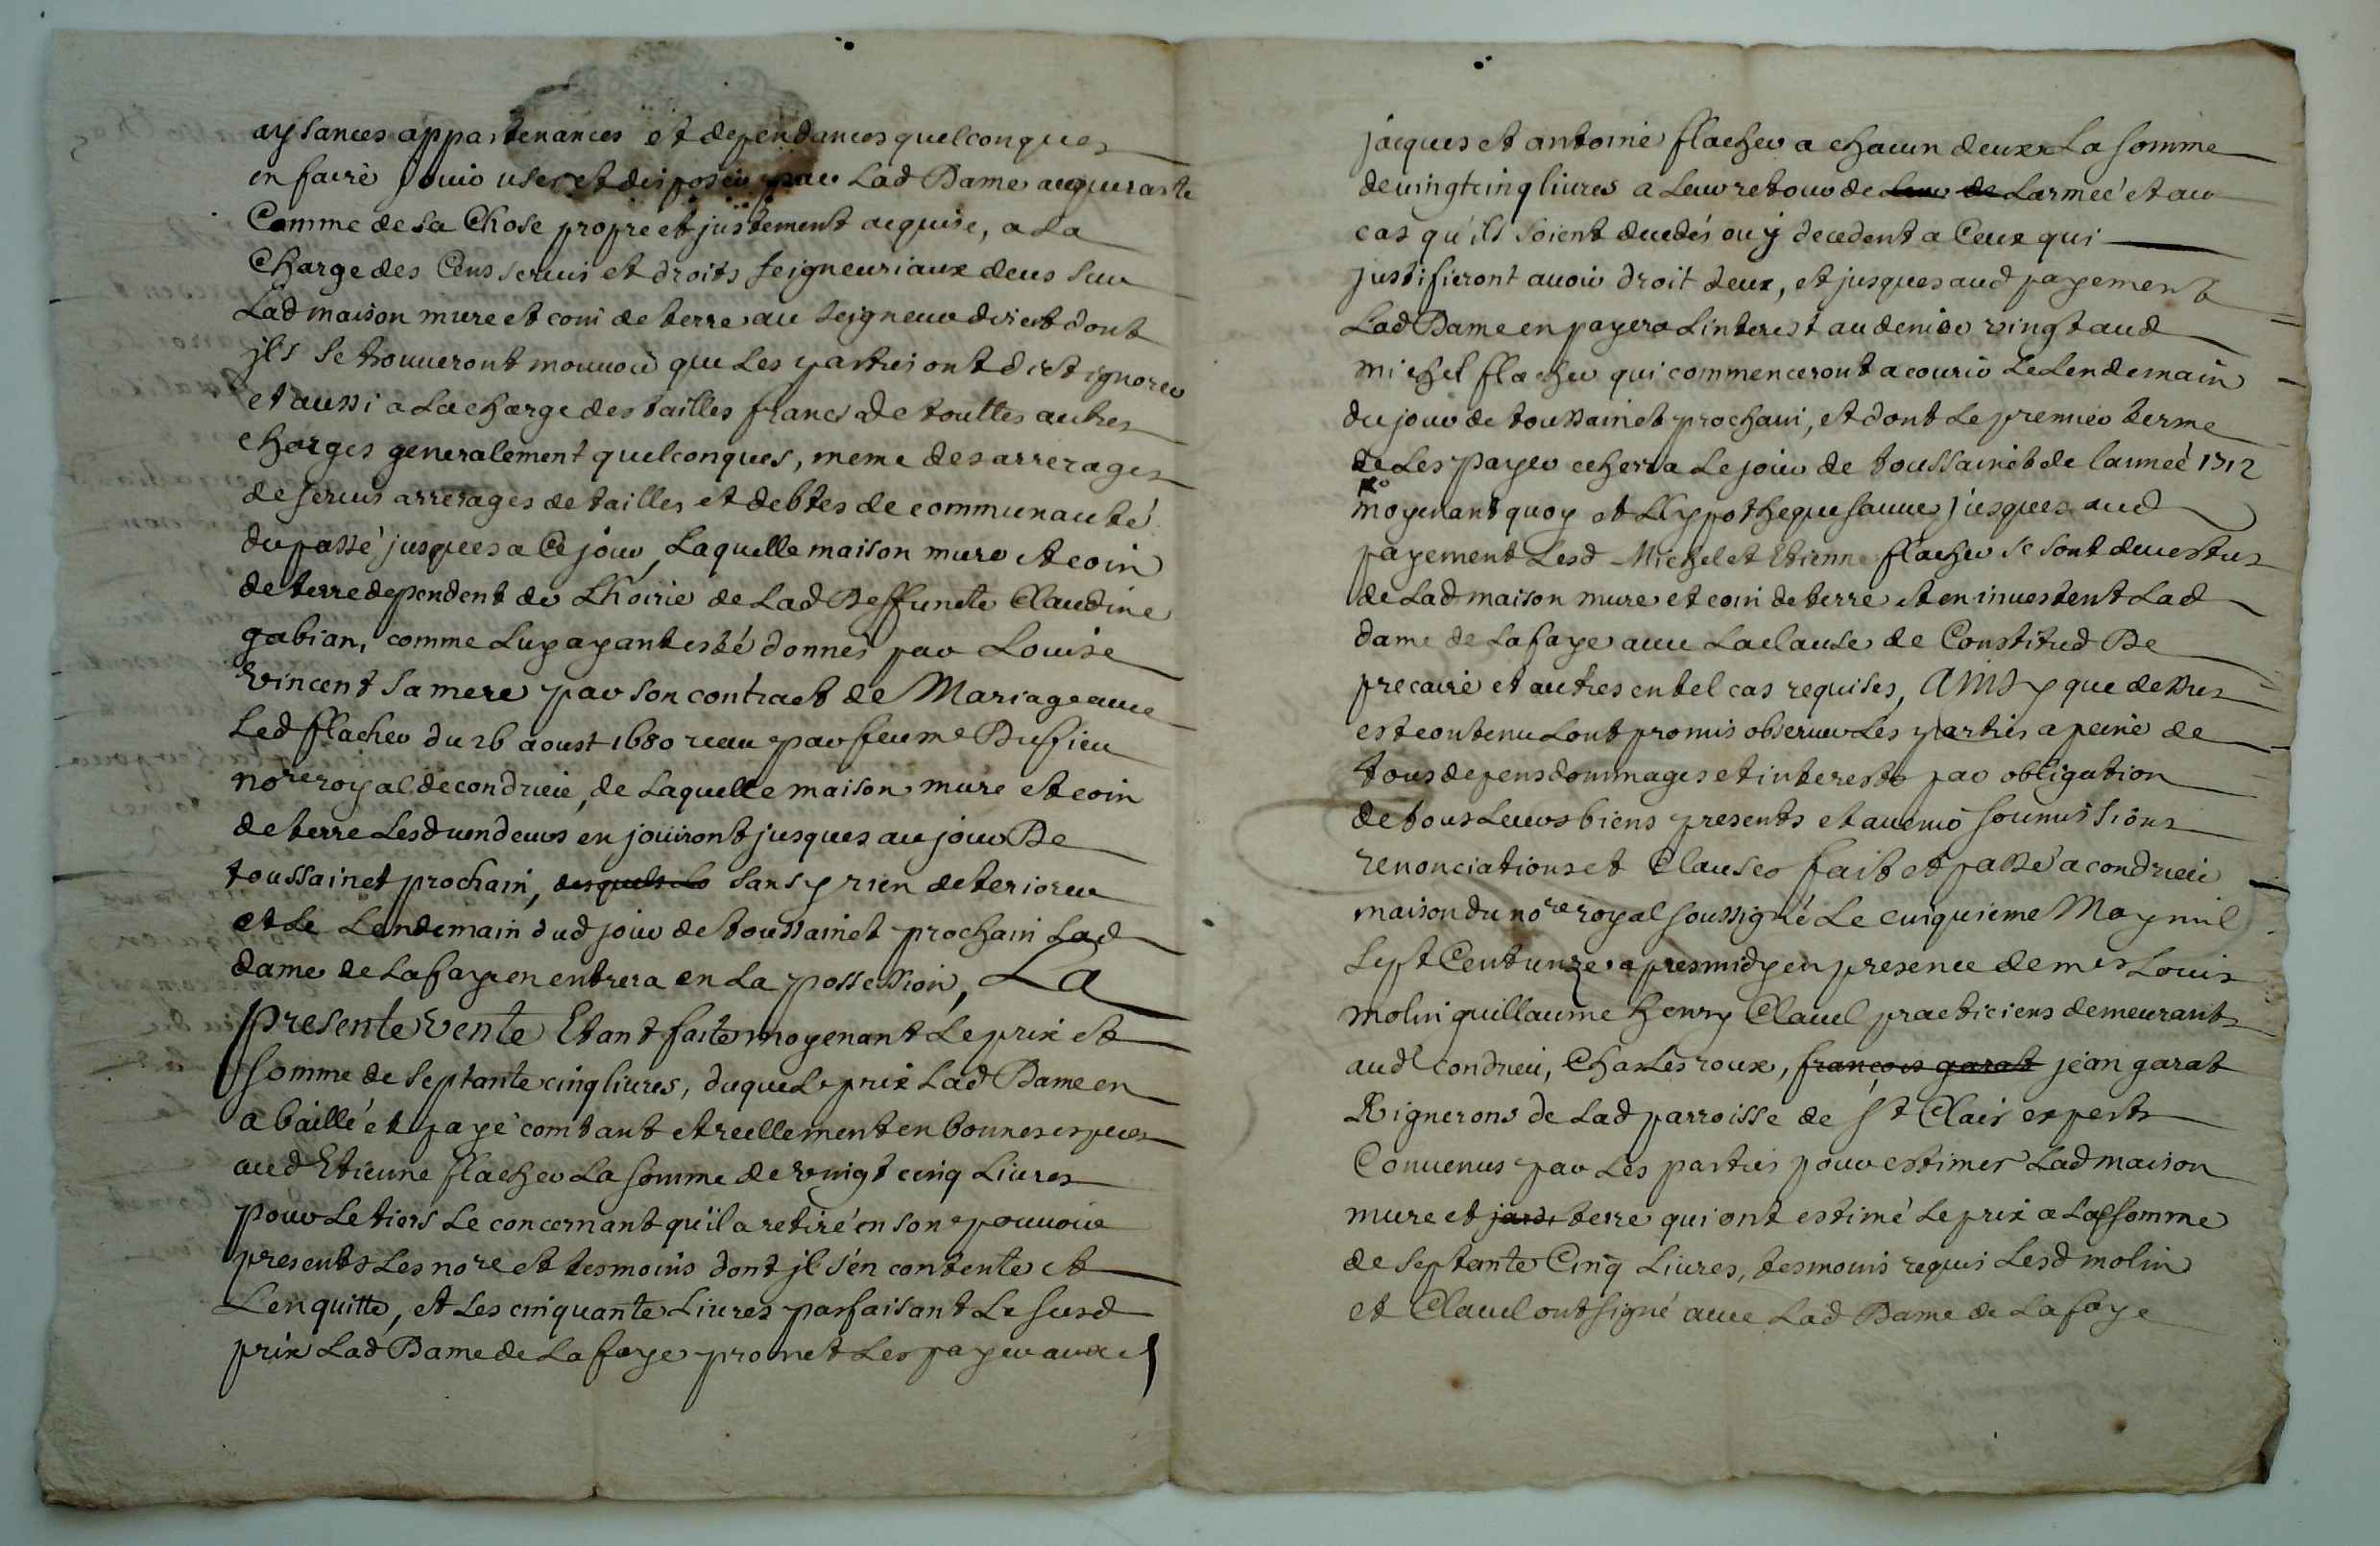 aysances appartenances et dependances quelconques
en faire jouir user et disposer par Lad Dame acquerante
Comme de sa Chose propre et justement acquise, a La
Charge des Cens servis et droits seigneuriaux deus sur
Lad maison mure et coin de terre au seigneur direct dont
jls se trouveront mouvoir que Les parties ont dict ignorer
et aussi a La charge des tailles francs de touttes autres
charges generalement quelconques, meme des arrerages
de servis arrerages de tailles et debtes de communauté
du passé jusques a Ce jour, Laquelle maison mure et coin
de terre dependent de Lhoirie de Lad Deffuncte Claudine
gabian, comme Luy ayant esté donnés par Louise
vincent sa mere par son contract de Mariage avec
Led flacher du 26 aoust 1680 receu par feu me Dufieu
nore royal de condrieu, de Laquelle maison mure et coin
de terre Lesd vendeurs en jouiront jusques au jour De
toussainct prochain, sans y rien deteriorer
et Le Lendemain dud jour de toussainct prochain Lad
dame de Lafaye en entrera en La possession, La
presente vente Etant faite moyenant Le prix et
somme de septante cinq livres, duquel prix Lad Dame en
a baillé et payé comtant et reellement en bonnes especes
aud Etienne flacher La somme de vingt cinq Livres
pour Le tiers Le concernant qu'il a retiré en son pouvoir
presents Les nore et tesmoins dont jl s'en contente et
Len quitte, et Les cinquante Livres parfaisant Le susd
prix Lad Dame de La faye promet Les payer aux
jacques et antoine flacher a chacun deux La somme
de vingt cinq livres a Leur retour de Leur de Larmée et au
cas qu'ils soient decedés ou y decedent a Ceux qui
justifieront avoir droit deux, et jusques aud payement
Lad Dame en payera Linterest au denier vingt aud
michel flacher qui commenceront a courir Le Lendemain
du jour de toussainct prochain, et dont Le premier terme
de Les payer echerra Le jour de toussainct de lannée 1712
moyenant quoy et Lhypotheque sauve jusques aud
payement Lesd Michel et Etienne flacher se sont devestus
de Lad maison mure et coin de terre et en investent Lad
dame de Lafaye avec La clause de Constitud De
precaire et autres en tel cas requises, Ainsy que dessus
est contenu Lont promis observer Les parties a peine de
tous depens dommages et interests par obligation
de tous Leurs biens presents et avenir soumissions
renonciations et Clauses fait et passé a condrieu
maison du nore royal soussigné Le cinquieme May mil
sept Cent unze apres midy en presence de mes Louis
molin guillaume henry Clavel practiciens demeurants
aud Condrieu, Charles roux, françois garat jean garat
Vignerons de Lad parroisse de st Clair experts
Convenus par Les parties pour estimer Lad maison
mure et jardi terre qui ont estimé Le prix a La somme
de septante Cinq Livres, tesmoins requis Lesd molin
et Clavel ont signé avec Lad Dame de Lafaye